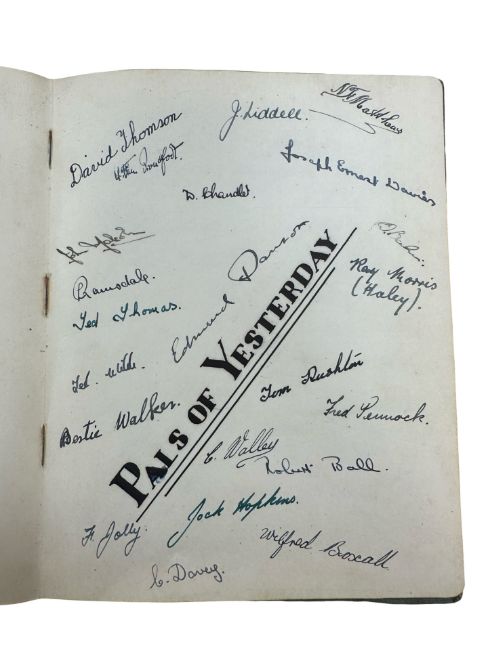 N. F. Matthews
J. Liddell.
David Thomson
Joseph Ernest Davies
D. Chandler.
C Ramsdale.
Ray Morris
(Haley).
Edmund Dawson
Ted Thomas.
PALS OF YESTERDAY
Ted Wilde.
Tom Rushton
Bertie Walker.
Fred Pennock.
C. Walley
Robert Ball.
Jack Hopkins.
F. Jolly.
Wilfred Boxall
C. Davey.